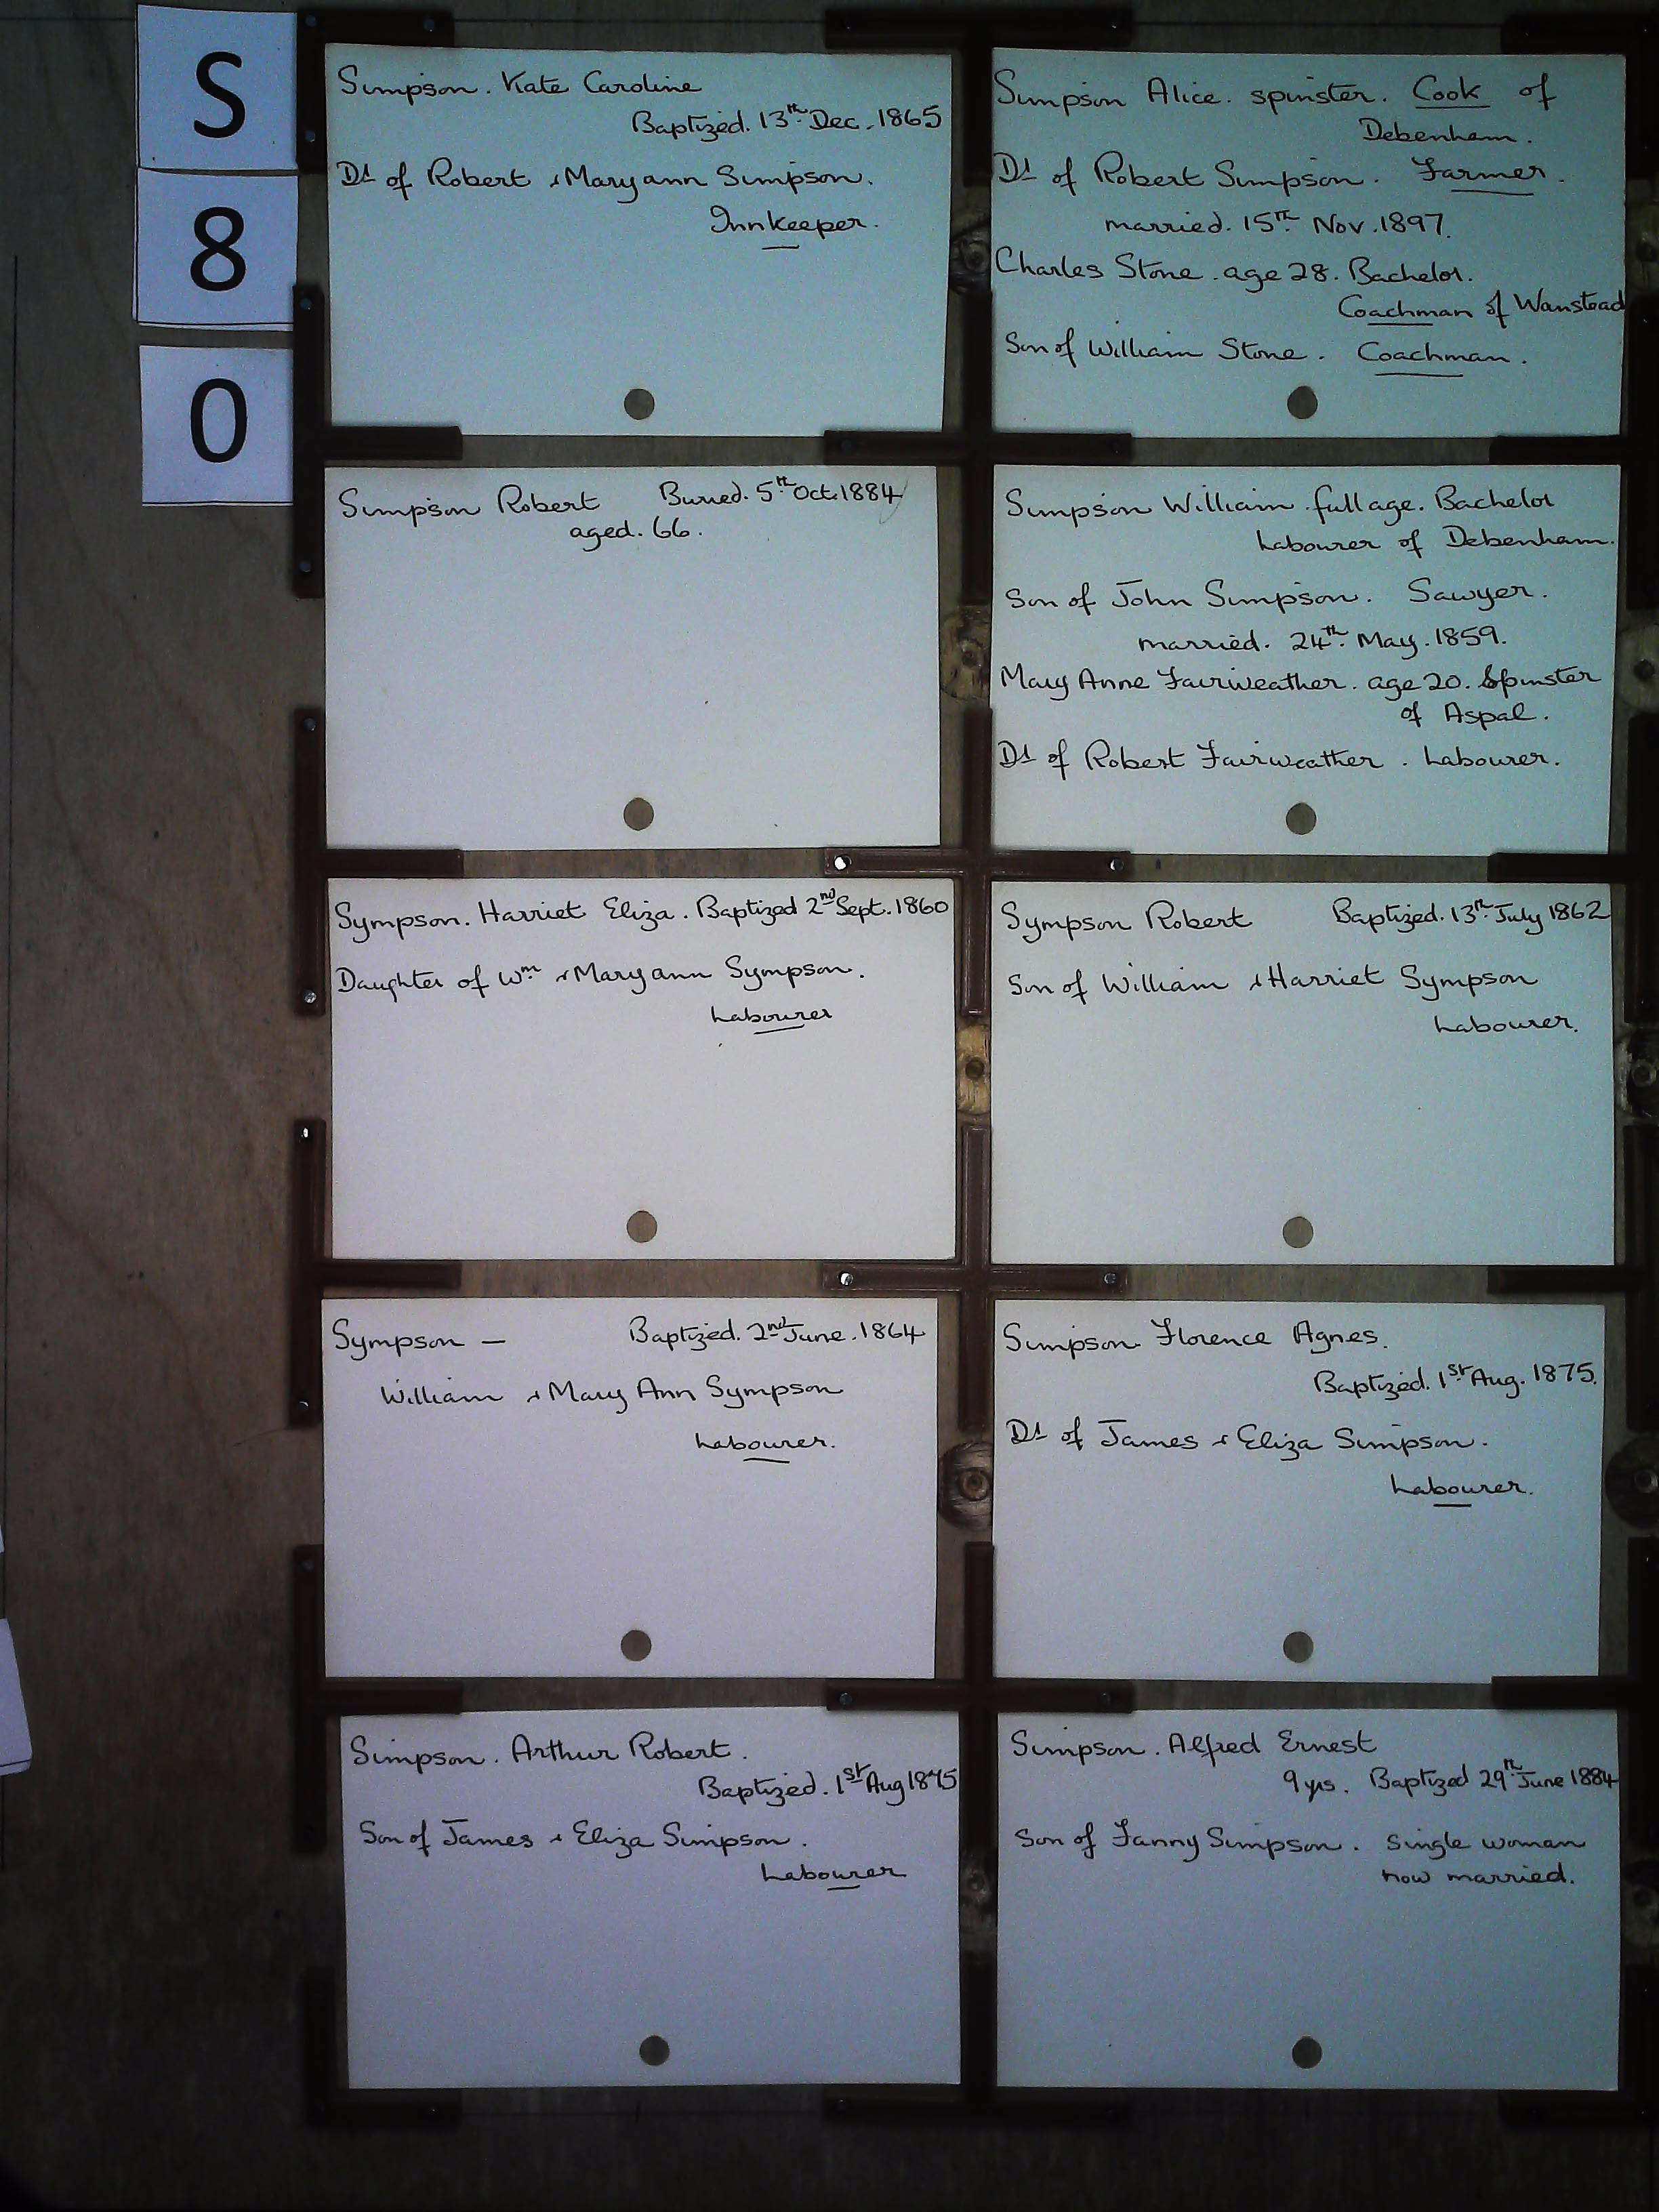 S
8
0
Simpson. Kate Caroline
Baptized. 13th Dec. 1865
Dt of Robert & Maryann Simpson.
Innkeeper.
Simpson Alice. spinster. Cook of
Debenham.
Dt of Robert Simpson. Farmer.
married. 15th Nov. 1897.
Charles Stone. age 28. Bachelor.
Coachman of Wanstead
Son of William Stone. Coachman.
Simpson Robert Buried. 5th Oct. 1884
aged. 66.
Simpson William. full age. Bachelor
Labourer of Debenham.
Son of John Simpson. Sawyer.
married. 24th May. 1859.
Mary Anne Fairweather. age 20. Spinster
of Aspal.
Dt of Robert Fairweather. Labourer.
Sympson. Harriet Eliza. Baptized 2nd Sept. 1860
Daughter of Wm & Maryann Sympson.
Labourer
Sympson Robert Baptized. 13th July 1862
Son of William & Harriet Sympson
Labourer.
Sympson — Baptized. 2nd June. 1864
William & Mary Ann Sympson
Labourer.
Simpson Florence Agnes.
Baptized. 1st Aug. 1875.
Dt of James & Eliza Simpson.
Labourer.
Simpson. Arthur Robert.
Baptized. 1st Aug 1875
Son of James & Eliza Simpson.
Labourer
Simpson. Alfred Ernest
9 yrs. Baptized 29th June 1884
Son of Fanny Simpson. single woman
now married.